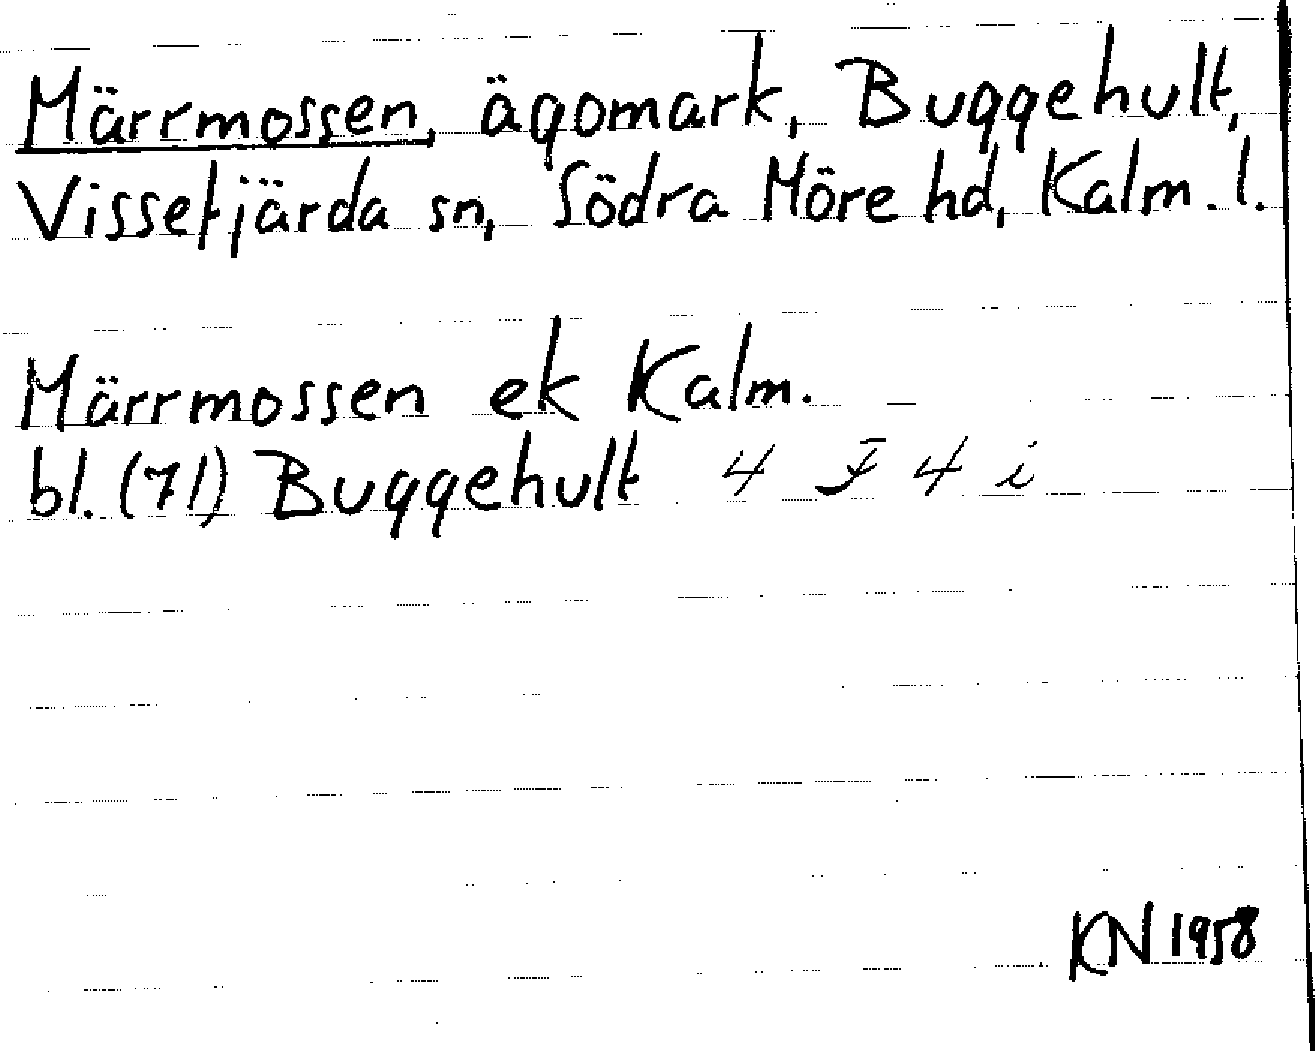 Märrmossen, ägomark, Buggehult,
Vissefjärda sn, Södra Möre hd, Kalm. l.
Märrmossen ek Kalm.
bl. (71) Buggehult 4 F 4 i
KN 1958